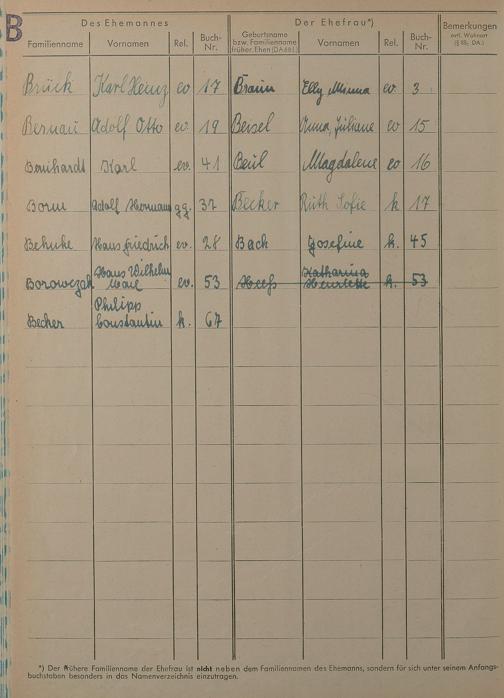 B
Des Ehemannes Der Ehefrau*) Bemerkungen
evtl. Wohnort
(§ 85, DA.)
Familienname Vornamen Rel. Buch-Nr. Geburtsname bzw. Familienname früher. Ehen (DA 88) Vornamen Rel. Buch-Nr.
Brück Karl Heinz ev 17 Braun Elly Minna ev 3
Bernau Adolf Otto ev. 19 Beisel Anna, Juliane ev 15
Bernhardt Karl ev. 41 Beul Magdalena ev 16
Born Adolf Hermann gg. 32 Becker Ruth Sofie k 17
Behnke Hans Friedrich ev. 28 Bach Josefine k. 45
Borowczak Hans Wilhelm Karl ev. 53 Heeß Katharina Henriette k. 53
Becher Philipp Constantin k. 67
*) Der frühere Familienname der Ehefrau ist nicht neben dem Familiennamen des Ehemanns, sondern für sich unter seinem Anfangs-
buchstaben besonders in das Namenverzeichnis einzutragen.